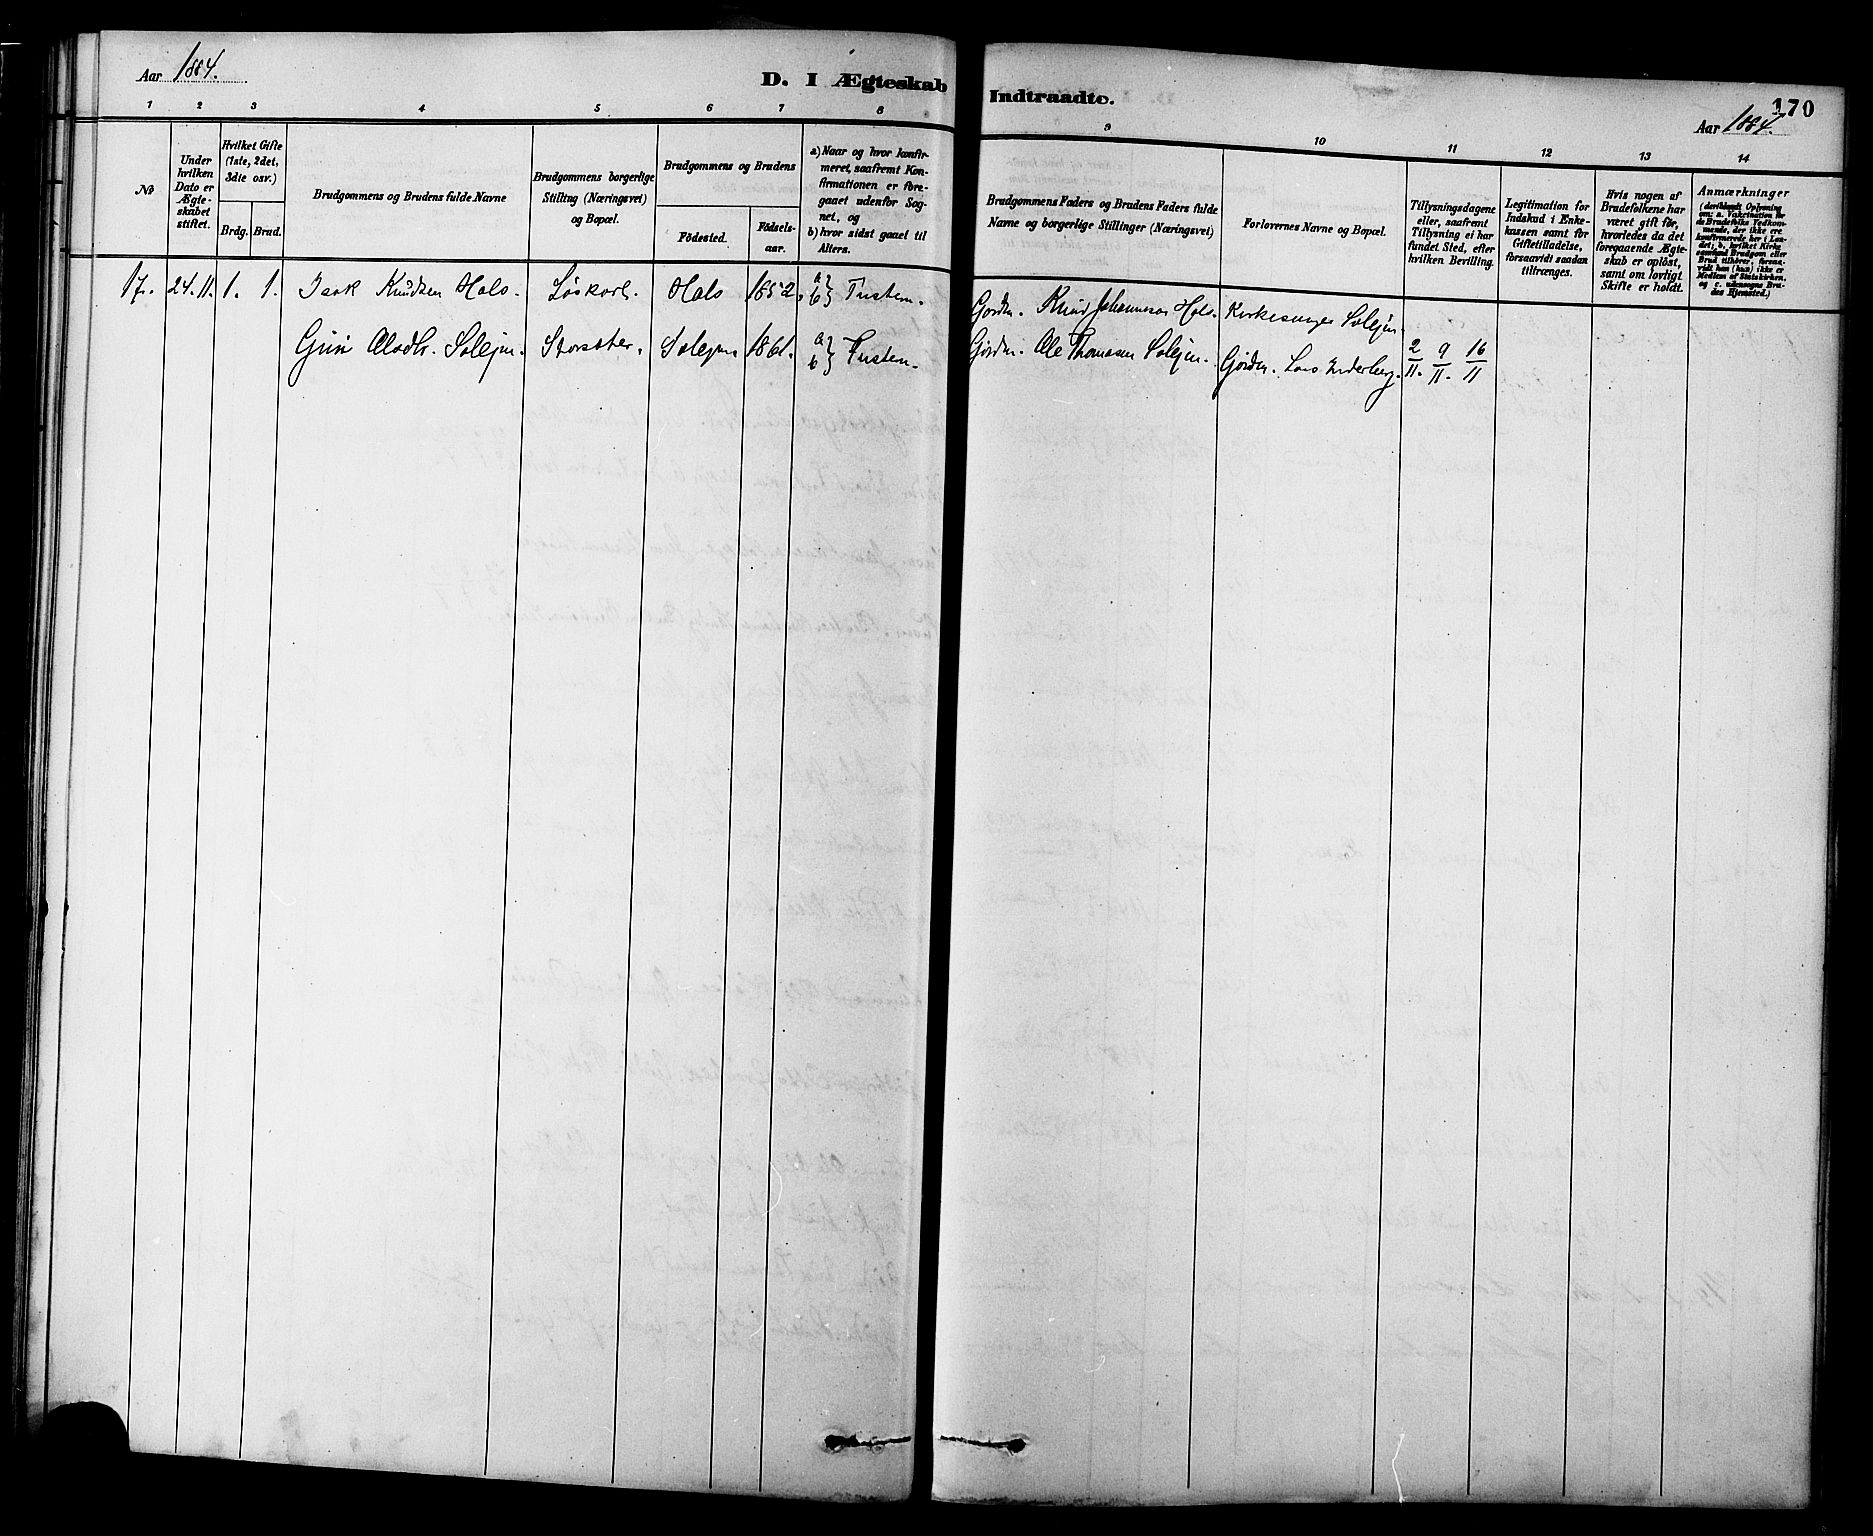 Aar 1884.
D. I Ægteskab
Indtraadte.
170
Aar 1884.
1 2 3 4 5 6 7 8 9 10 11 12 13 14
No
Under
hvilken
Dato er
Ægte-
skabet
stiftet.
Hvilket Gifte
(1ste, 2det,
3die osv.)
Brdg. Brud.
Brudgommens og Brudens fulde Navne
Brudgommens borgerlige
Stilling (Næringsvei)
og Bopæl.
Brudgommens og Brudens
Födested.
Födsels-
aar.
a) Naar og hvor konfir-
meret, saafremt Kon-
firmationen er fore-
gaaet udenfor Sog-
net, og
b) hvor sidst gaaet til
Alters.
Brudgommens Faders og Brudens Faders fulde
Navne og borgerlige Stillinger (Næringsvei)
Forlovernes Navne og Bopæl.
Tillysningsdagene
eller, saafremt
Tillysning ei har
fundet Sted, efter
hvilken Bevilling.
Legitimation for
Indskud i Enke-
kassen samt for
Giftetilladelse,
forsaavidt saadan
tiltrænges.
Hvis nogen af
Brudefolkene har
været gift för,
hvorledes da det
foregaaende Ægte-
skab er oplöst,
samt om lovligt
Skifte er holdt.
Anmærkninger
(deriblandt Oplysning
om: a. Vakcination for
de Brudefolks Vedkom-
mende, der ikke ere
konfirmerede her i Lan-
det; b. hvilket Kirke
samfund Brudgom eller
Brud tilhører, forsaa-
vidt han (hun) ikke er
Medlem af Statskirken,
og c. udensogns Bru-
des Hjemsted.)
17. 24.11. 1. 1. Isak Knudsen Hals. Löskarl. Hals 1852. a} b} Tusten. Gårdm. Knud Johannesen Hals. Kirkesanger Solejm.
Guri Olsdtr. Solejm. Storsæter. Solejm 1861. a} b} Tusten. Gårdm. Ole Thomasen Solejm. Gårdm. Lars Enderberg. 2/11. 9/11. 16/11